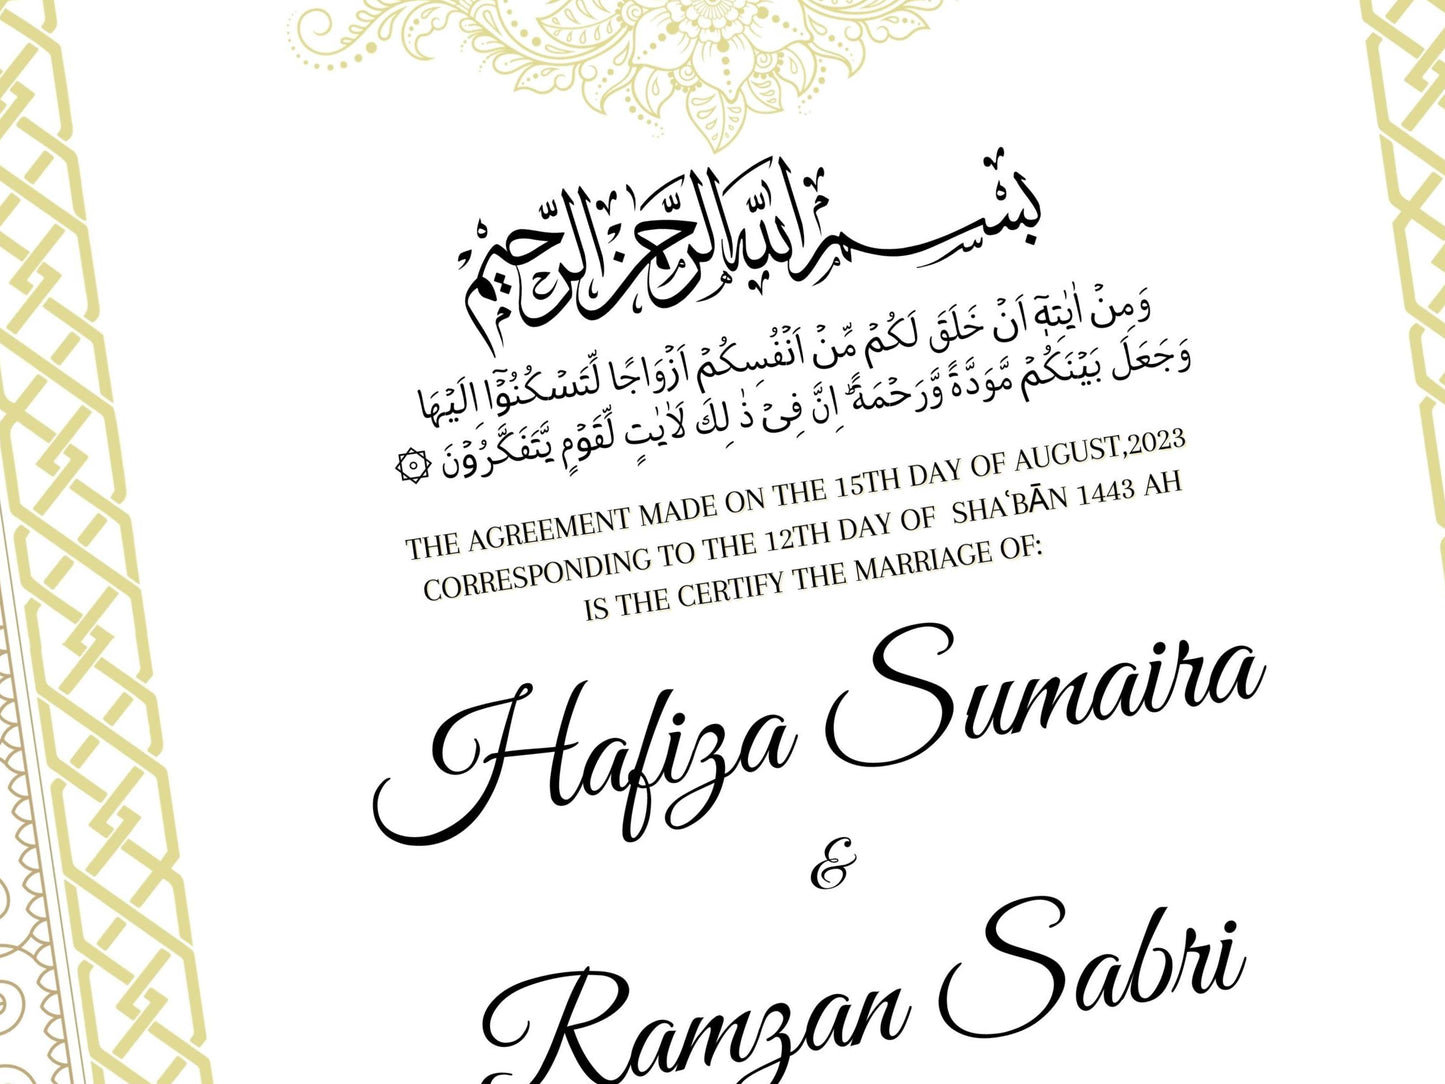 بِسْمِ اللَّهِ الرَّحْمَنِ الرَّحِيمِ
وَمِنْ اٰيٰتِهٖٓ اَنْ خَلَقَ لَكُمْ مِّنْ اَنْفُسِكُمْ اَزْوَاجًا لِّتَسْكُنُوْٓا اِلَيْهَا
وَجَعَلَ بَيْنَكُمْ مَّوَدَّةً وَّرَحْمَةً ؕ اِنَّ فِىْ ذٰ لِكَ لَاٰيٰتٍ لِّقَوْمٍ يَّتَفَكَّرُوْنَ ۞
THE AGREEMENT MADE ON THE 15TH DAY OF AUGUST,2023
CORRESPONDING TO THE 12TH DAY OF SHAʿBĀN 1443 AH
IS THE CERTIFY THE MARRIAGE OF:
Hafiza Sumaira
&
Ramzan Sabri